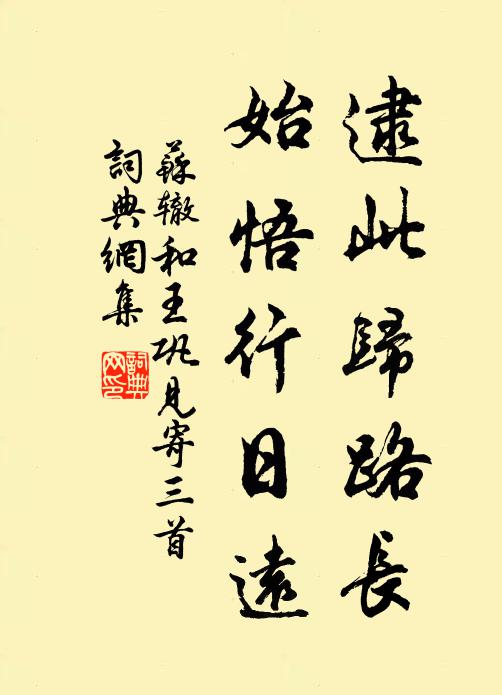 逮此歸路長
始悟行日遠
蘇轍和王巩見寄三首
詞典網集
詞典
网印